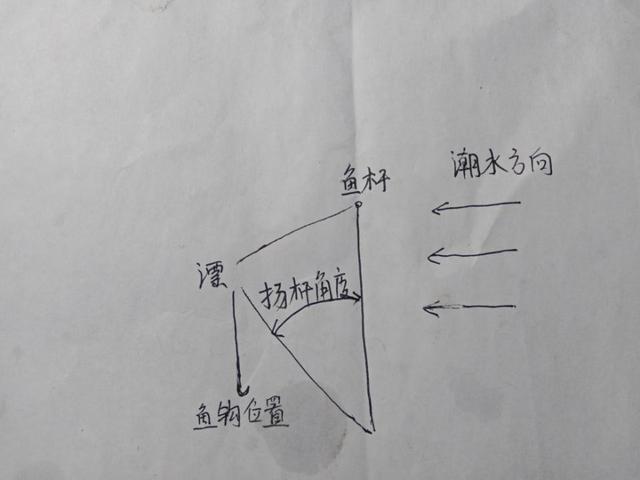 潮水方向
鱼杆
漂
扬杆角度
鱼钩位置